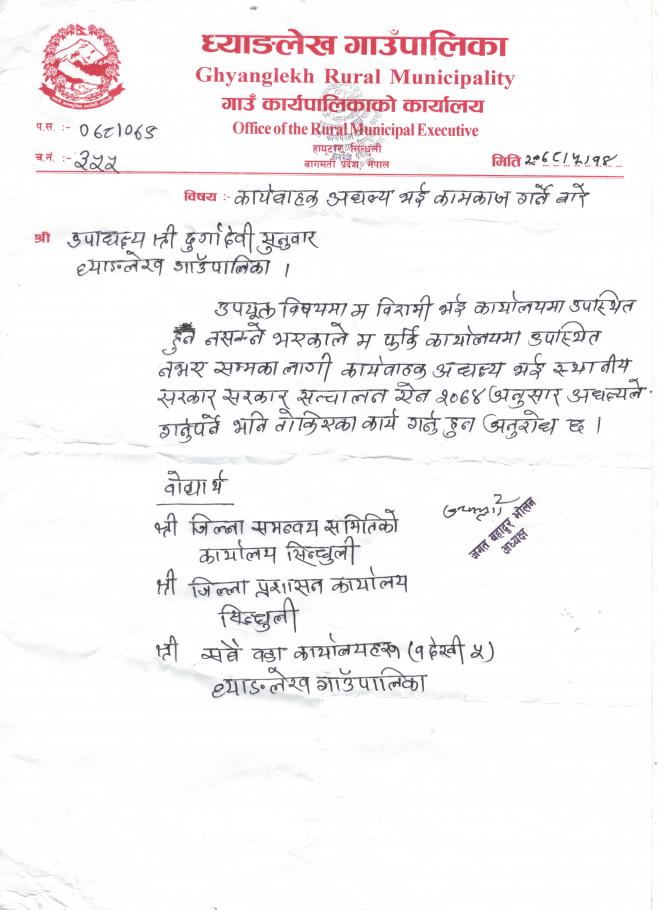 घ्याङलेख गाउँपालिका
Ghyanglekh Rural Municipality
गाउँ कार्यपालिकाको कार्यालय
Office of the Rural Municipal Executive
हायुटार, सिन्धुली
बागमती प्रदेश, नेपाल
प.स. :- ०७८।०७९
च.नं. :- ३५५
मिति
विषय :- कार्यवाहक अध्यक्ष भई कामकाज गर्ने बारे
श्री उपाध्यक्ष श्री दुर्गादेवी सुनुवार
घ्याङलेख गाउँपालिका ।
उपयुक्त विषयमा म विरामी भई कार्यालयमा उपस्थित
हुन नसक्ने भएकाले म फुर्कि कार्यालयमा उपस्थित
नभए सम्मका लागी कार्यवाहक अध्यक्ष भई स्थानीय
सरकार सरकार सन्चालन ऐन २०७४ अनुसार अध्यक्षले
गर्नुपर्ने भनि तोकिएका कार्य गर्नु हुन अनुरोध छ ।
वोधार्थ
श्री जिल्ला समन्वय समितिको
कार्यालय सिन्धुली
श्री जिल्ला प्रशासन कार्यालय
सिन्धुली
श्री सबै वडा कार्यालयहरू (१ देखी ५)
घ्याङलेख गाउँपालिका
जगत बहादुर भोलन
अध्यक्ष